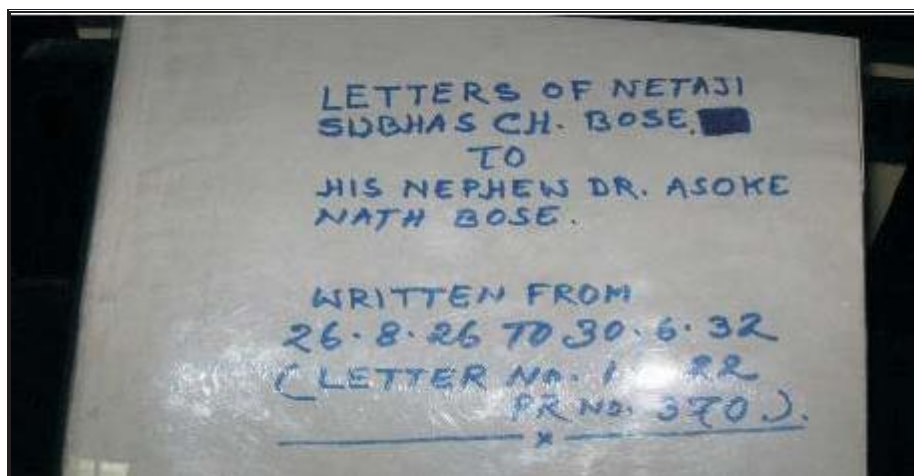 LETTERS OF NETAJI
SUBHAS CH. BOSE.
TO
HIS NEPHEW DR. ASOKE
NATH BOSE.
WRITTEN FROM
26.8.26 TO 30.6.32
(LETTER NO. 1 22
PR NO. 370.).
x